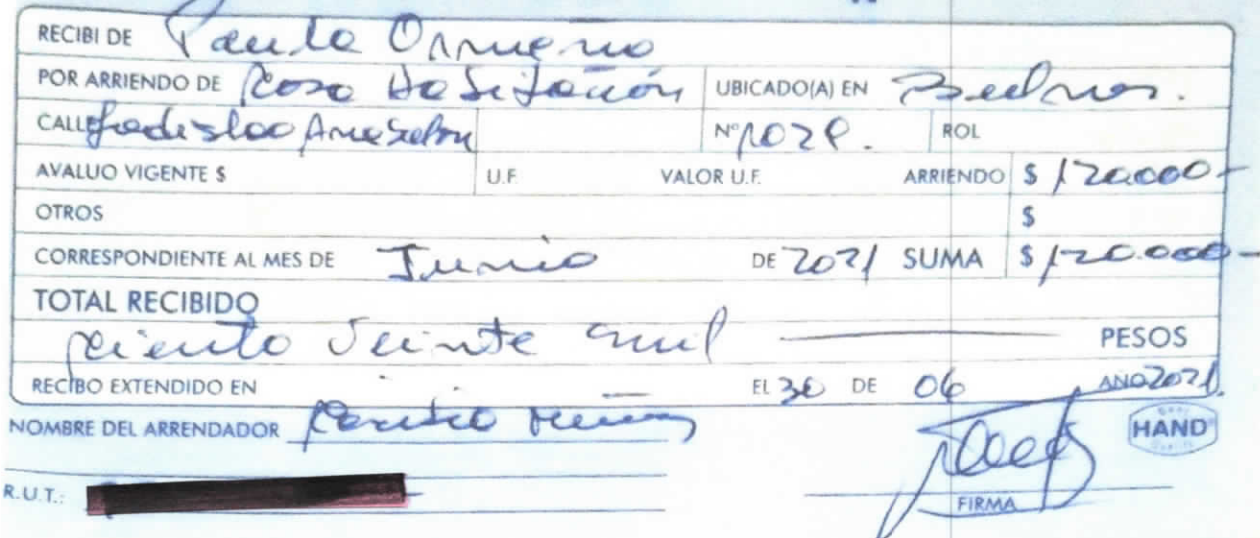 RECIBI DE Paula Ormeño
POR ARRIENDO DE Casa Habitación UBICADO(A) EN
CALLE N° 1028. ROL
AVALUO VIGENTE $ U.F. VALOR U.F. ARRIENDO $ 120.000-
OTROS $
CORRESPONDIENTE AL MES DE Junio DE 2021 SUMA $ 120.000-
TOTAL RECIBIDO
Ciento Veinte mil PESOS
RECIBO EXTENDIDO EN EL 30 DE 06 AÑO 2021.
NOMBRE DEL ARRENDADOR
HAND
R.U.T.:
FIRMA